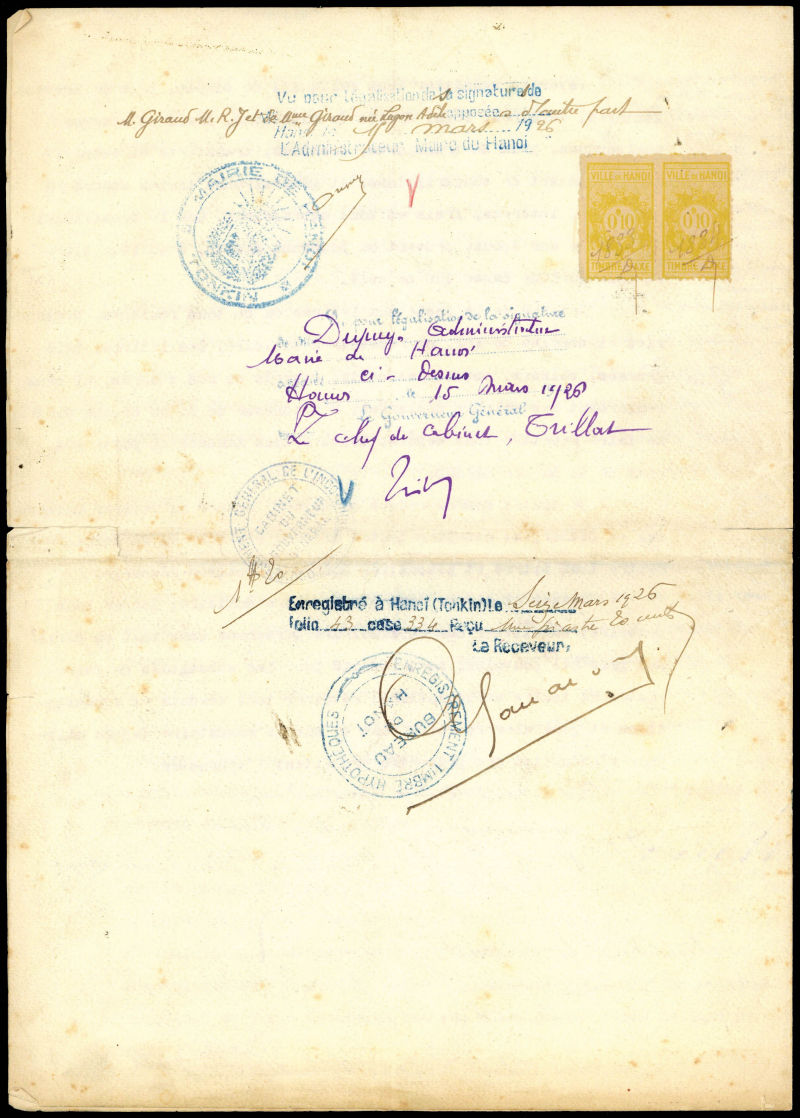 Vu pour légalisation des signatures de
M. Giraud M. R. J et Mme Giraud née apposées d'autre part
Hanoi le 11 mars 1926
L'Administrateur Maire de Hanoï
MAIRIE DE HANOI
TONKIN
VILLE DE HANOI
0$10
TIMBRE TAXE
VILLE DE HANOI
0$10
TIMBRE TAXE
Vu, pour légalisation de la signature
de M. Dupuy, Administrateur
Maire de Hanoï
ci-dessus
Hanoï le 15 Mars 1926
P. Le Gouverneur Général
Le chef de cabinet, Trillat
GOUVERNEMENT GÉNÉRAL DE L'INDO
CABINET
DU
GOUVERNEUR
GÉNÉRAL
1$20
Enregistré à Hanoï (Tonkin) le Seize Mars 1926
folio 43 case 334 Reçu Une piastre 20 cents
Le Receveur,
ENREGISTREMENT TIMBRE HYPOTHÈQUES
BUREAU
DE
HANOÏ